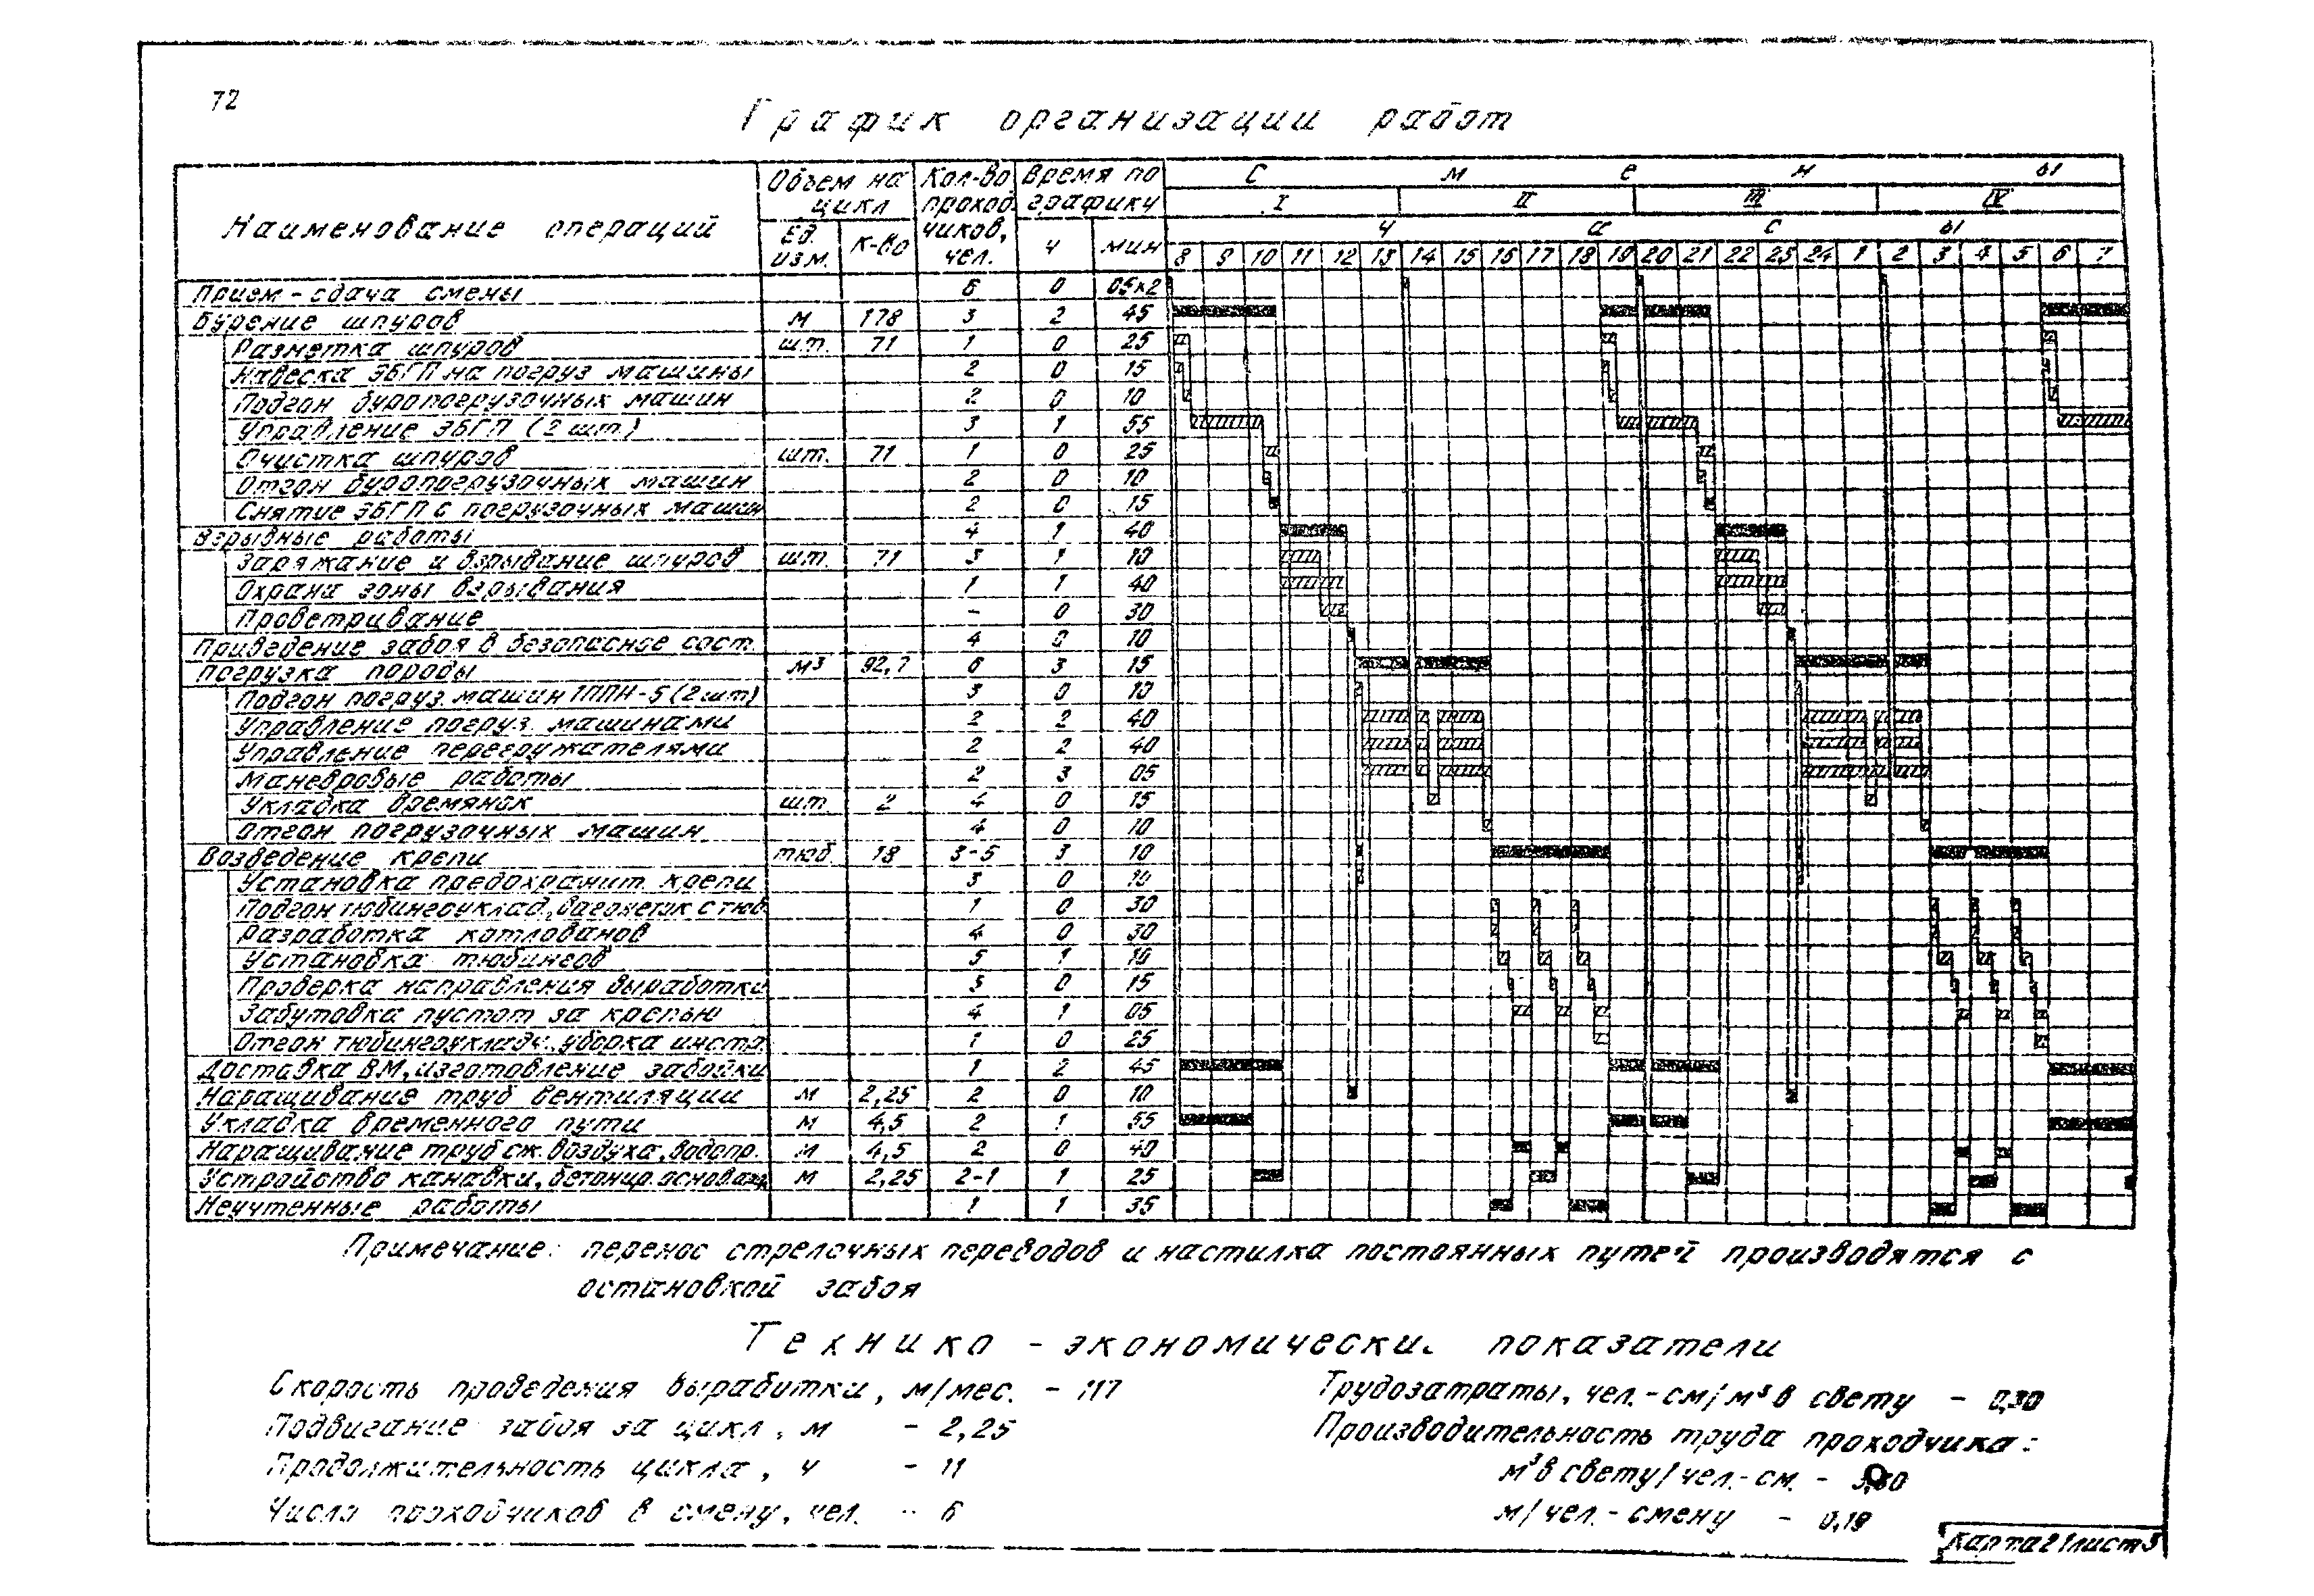 72
График организации работ
Наименование операций | Объем на цикл | Кол-во проход­чиков, чел. | Время по графику | Смены
Ед. изм. | к-во | ч | мин | I | II | III | IV
Часы
8 9 10 11 12 13 14 15 16 17 18 19 20 21 22 23 24 1 2 3 4 5 6 7
Прием-сдача смены 6 0 05х2
Бурение шпуров м 178 3 2 45
Разметка шпуров шт. 71 1 0 25
Навеска ЭБГП на погруз машины 2 0 15
Подгон буропогрузочных машин 2 0 10
Управление ЭБГП (2 шт.) 3 1 55
Очистка шпуров шт. 71 1 0 25
Отгон буропогрузочных машин 2 0 10
Снятие ЭБГП с погрузочных машин 2 0 15
Взрывные работы 4 1 40
Заряжание и взрывание шпуров шт. 71 3 1 10
Охрана зоны взрывания 1 1 40
Проветривание - 0 30
Приведение забоя в безопасное сост. 4 0 10
Погрузка породы м³ 92,7 6 3 15
Подгон погруз. машин 1ППН-5 (2 шт) 3 0 10
Управление погруз. машинами 2 2 40
Управление перегружателями 2 2 40
Маневровые работы 2 3 05
Укладка времянок шт 2 4 0 15
Отгон погрузочных машин 4 0 10
Возведение крепи тюб 18 3-5 3 10
Установка предохранит. крепи 3 0 10
Подгон тюбингоуклад., вагонеток с тюб. 1 0 30
Разработка котлованов 4 0 30
Установка тюбингов 5 1 10
Проверка направления выработки 3 0 15
Забутовка пустот за крепью 4 1 05
Отгон тюбингоукладч., уборка инстр. 1 0 25
Доставка ВМ, изготовление забойки 1 2 45
Наращивание труб вентиляции м 2,25 2 0 10
Укладка временного пути м 4,5 2 1 55
Наращивание труб сж. воздуха, водопр. м 4,5 2 0 40
Устройство канавки, бетонир. основан. м 2,25 2-1 1 25
Неучтенные работы 1 1 35
Примечание: перенос стрелочных переводов и настилка постоянных путей производятся с
остановкой забоя
Технико-экономические показатели
Скорость проведения выработки, м/мес. - 117
Подвигание забоя за цикл, м - 2,25
Продолжительность цикла, ч - 11
Число проходчиков в смену, чел. - 6
Трудозатраты, чел.-см/м³ в свету - 0,30
Производительность труда проходчика:
м³ в свету/чел.-см. -
м/чел.-смену - 0,19
Карта 21 лист 5